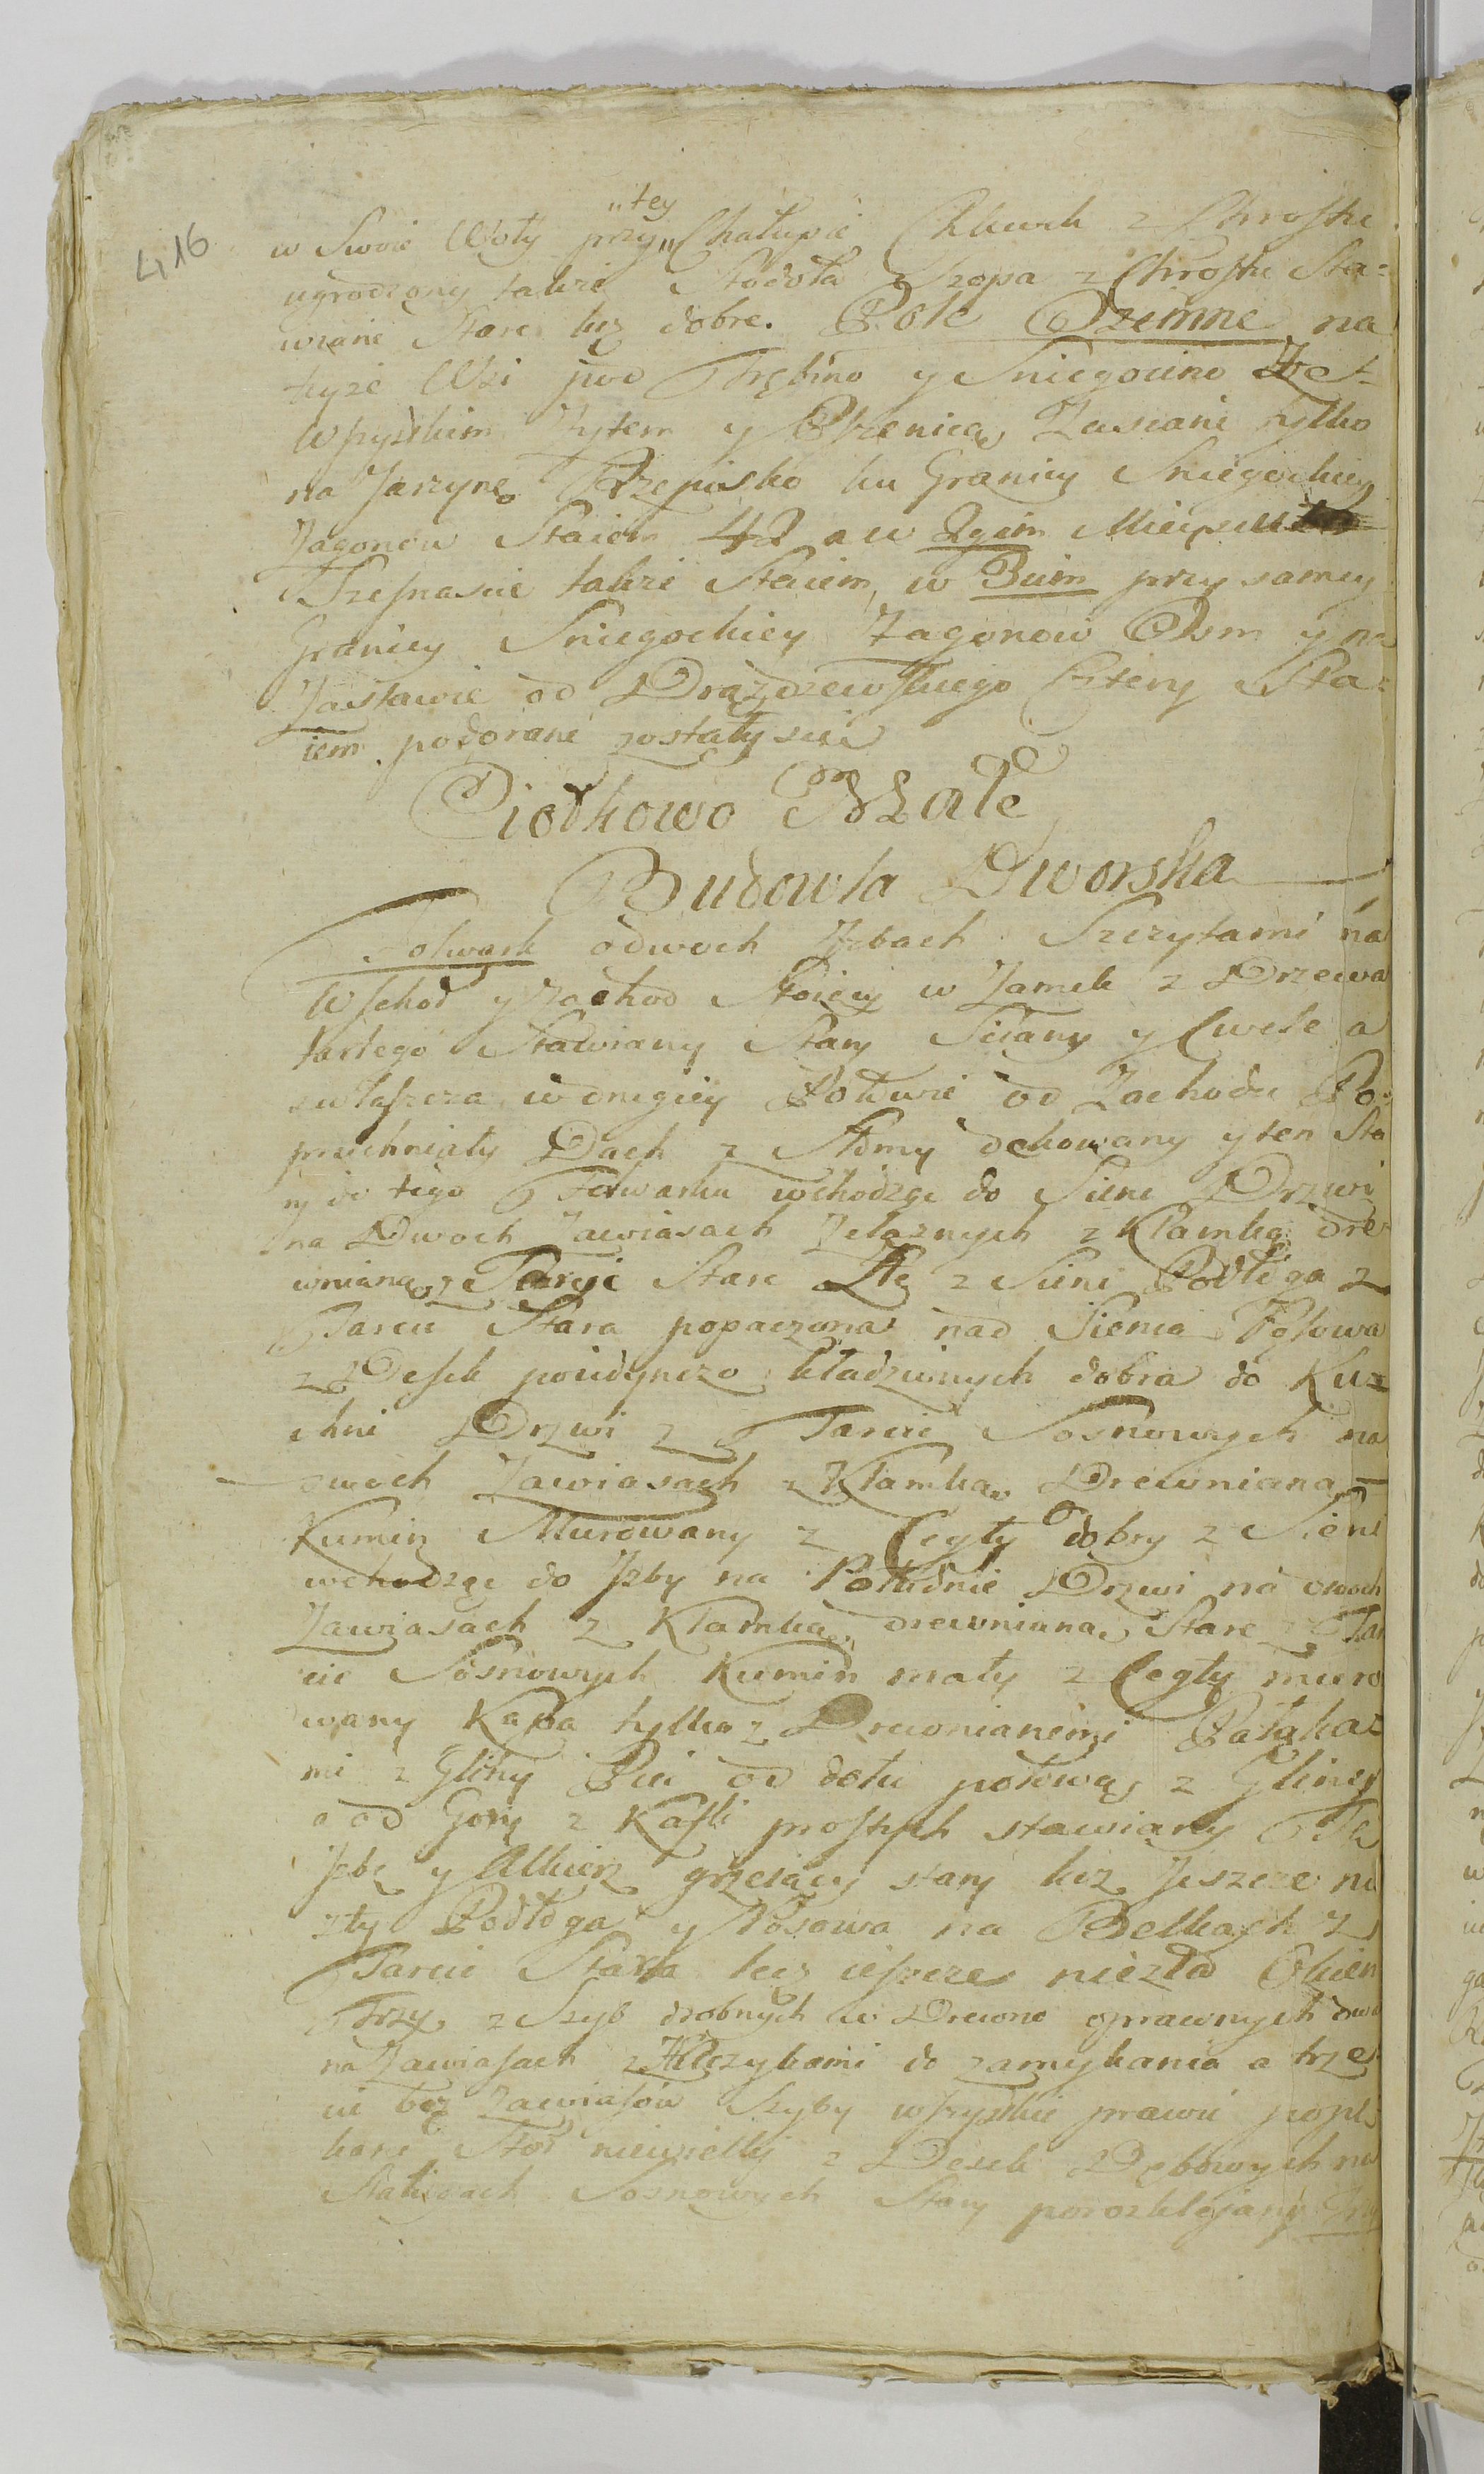 416
"tey
w Swoie Woły przy" Chałupie Chlewek z Chrostu
ugrodzony także Stodoła Szopa z Chrostu Sta=
wiane Stare lecz dobre. Pole Ozimne na
teyże Wsi pod Trębino y Sniegocino ze
wszystkim Żytem y Pszenicą Zasiane tylko
na Jarzynę Rzepisko ku Granicy Sniegockiey
Zagonow Staiem 42 a w 2gim Mieyscu
Szesnascie także Staiem, w 3cim przy samey
Granicy Sniegockiey Zagonow Osm y na
Zastawie od Drażdzewskiego Cztery Sta=
iem podorane zostały sie
Ciołkowo Małe
Budowla Dworska
Folwark o dwoch Jzbach Szczytami na
Wschod y Zachod Stoiący w Zamek z Drzewa
tartego Stawiany Stary Sciany y Cwele a
zwłaszcza w drugiey Połowie od Zachodu Po=
pruchniały Dach z Słomy dekowany y ten Sta
ry do tego Folwarku wchodząc do Sieni Drzwi
na Dwoch Zawiasach Żelaznych z Klamką dre
wnianą z Tarcic Stare Złe z Sieni Podłoga z
Tarcic Stara popaczona nad Sienią Posowa
z Desek poiedynczo kładzionych dobra do Ku=
chni Drzwi z Tarcic Sosnowych na
dwoch Zawiasach z Klamką Drewnianą
Kumin Murowany z Cegły dobry z Sieni
wchodząc do Jzby na Południe Drzwi na dwoch
Zawiasach z Klamką drewnianą Stare z Tar
cic Sosnowych Kumin mały z Cegły muro
wany Kapa tylko z Drewnianemi Pałąka=
mi z Gliny Piec od dołu połową z Gliny
a od Gory z Kafli prostych stawiany Tę
Jzbę y Alkierz grzeiący stary lecz Jeszcze nie
zły Podłoga y Posowa na Belkach z
Tarcic Stara lecz ieszcze niezła Okien
Trzy z Szyb drobnych w Drewno oprawnych dwa
na Zawiasach z Haczykami do zamykania a trze
cie bez Zawiasow Szyby wszystkie prawie popę
kane Stoł niewielki z Desek Dębowych na
Stalugach Sosnowych Stary porozklejany